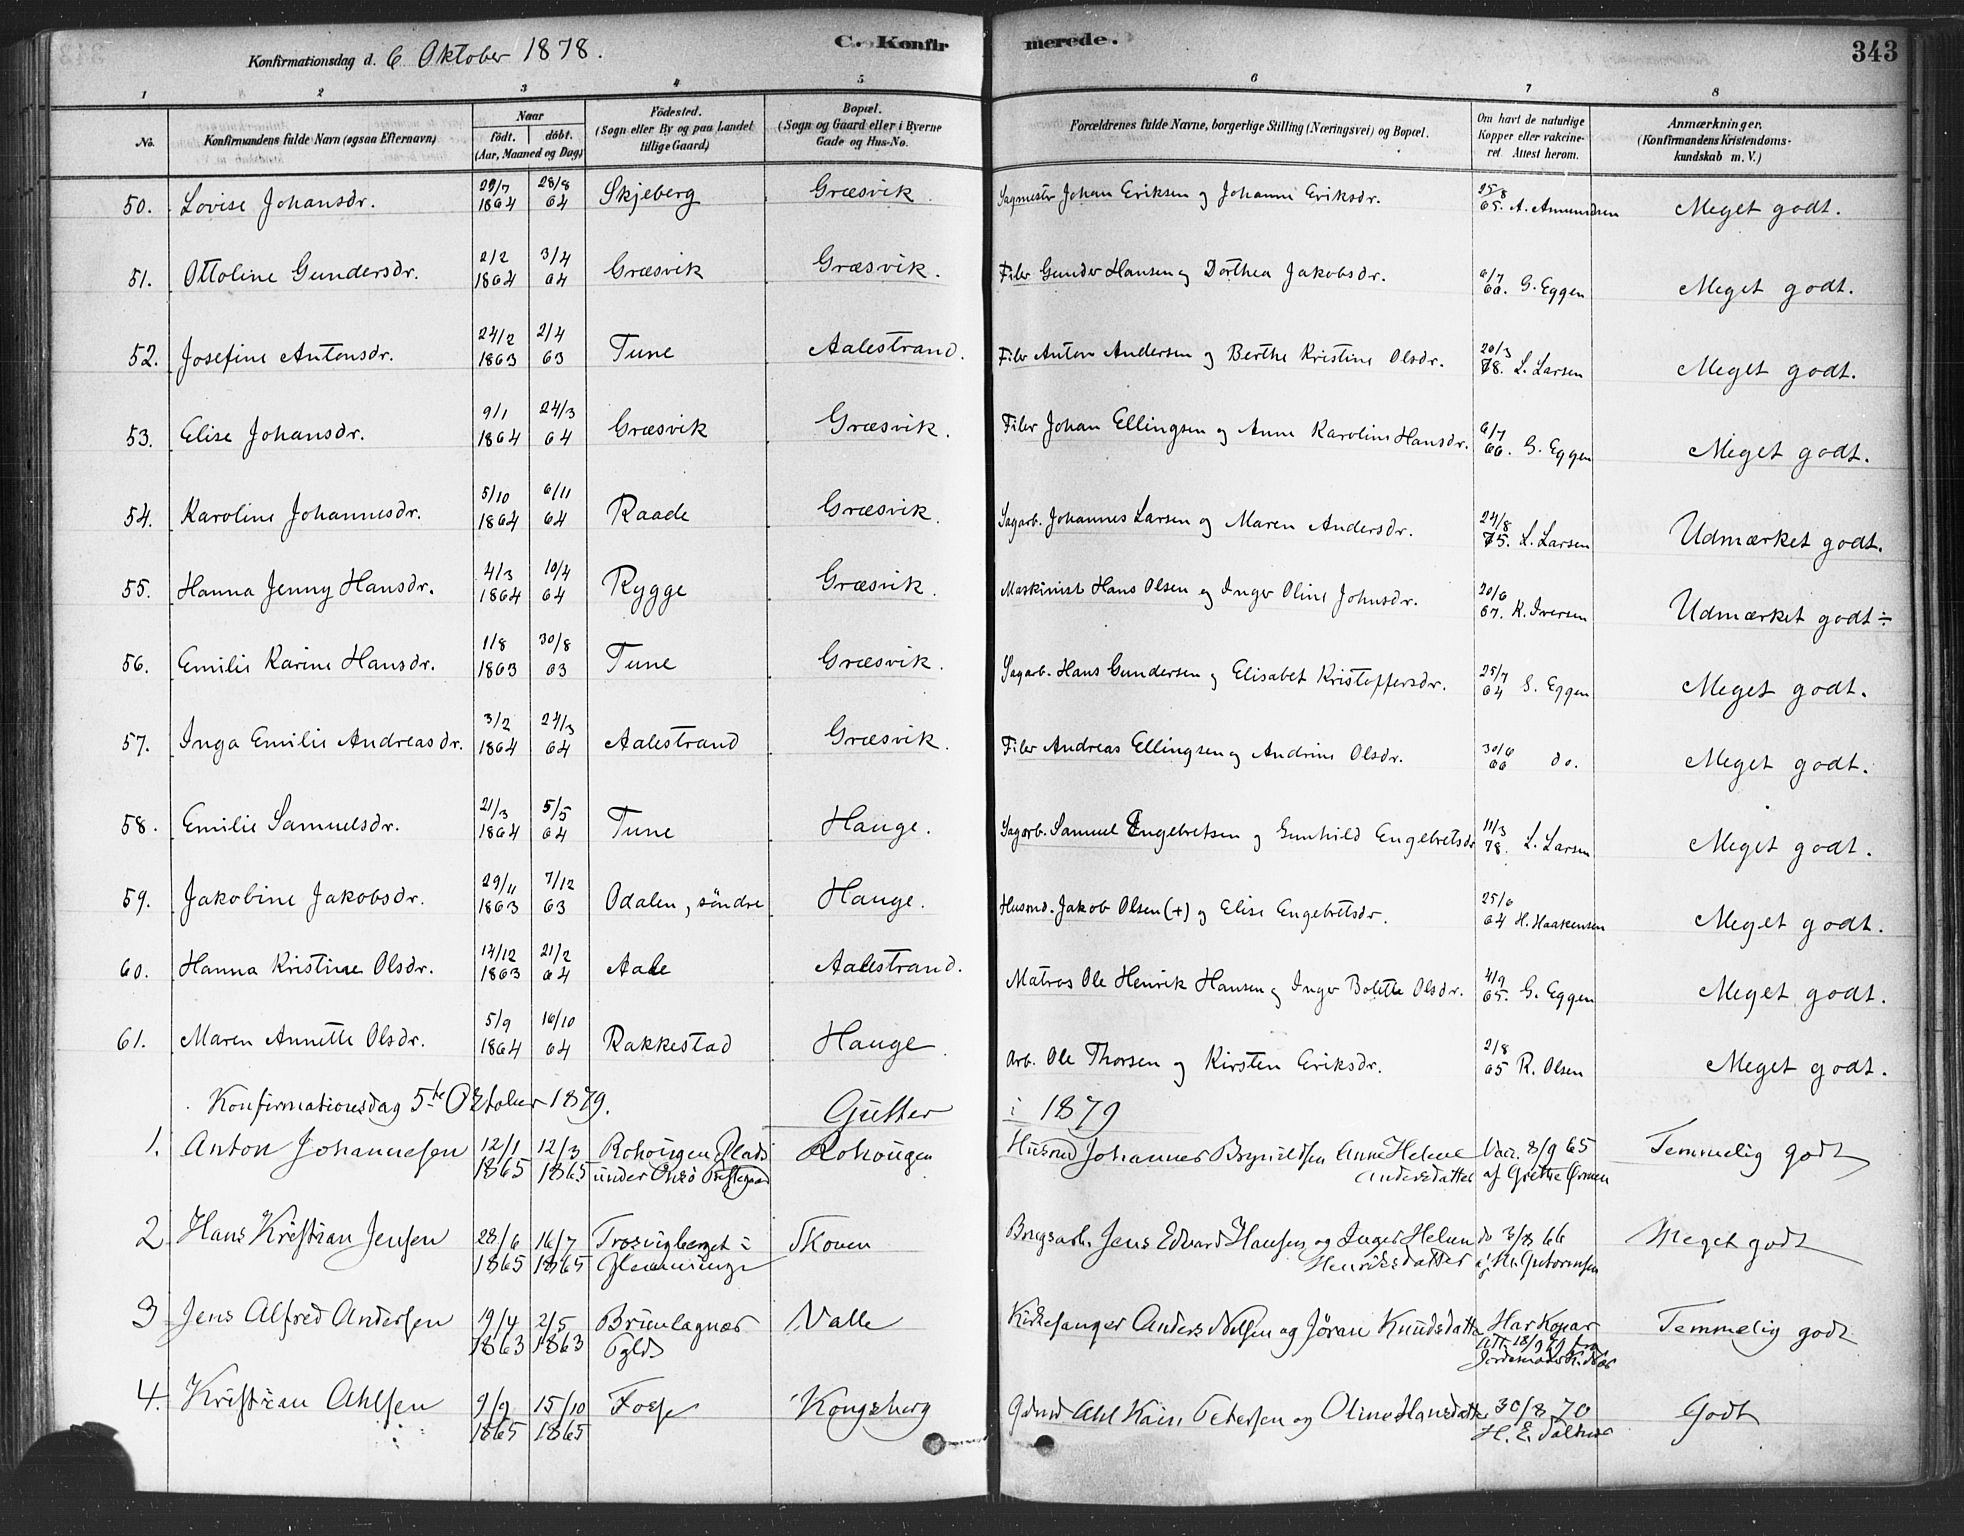 Konfirmationsdag d. 6 Oktober 1878.
C. Konfirmerede.
343
1 2 3 4 5 6 7 8
No. Konfirmandens fulde Navn (ogsaa Efternavn) Naar født. døbt. (Aar, Maaned og Dag) Fødested. (Sogn eller By og paa Landet tillige Gaard) Bopæl. (Sogn og Gaard eller i Byerne Gade og Hus-No. Forældrenes fulde Navne, borgerlige Stilling (Næringsvei) og Bopæl. Om havt de naturlige Kopper eller vakcineret. Attest herom. Anmærkninger. (Konfirmandens Kristendomskundskab m. V.)
50. Lovise Johansdr. 29/7 1864 28/8 64 Skjeberg Græsvik. Sagmester Johan Eriksen og Johanne Eriksdr. 25/8 65. A. Amundsen Meget godt.
51. Ottoline Gundersdr. 2/2 1864 3/4 64 Græsvik Græsvik. Filer Gunder Hansen og Dorthea Jakobsdr. 6/7 66. G. Eggen Meget godt.
52. Josefine Antonsdr. 24/2 1863 2/4 63 Tune Aalestrand. Filer Anton Andersen og Berthe Kristine Olsdr. 20/3 78. L. Larsen Meget godt.
53. Elise Johansdr. 9/1 1864 24/3 64 Græsvik Græsvik. Filer Johan Ellingsen og Anne Karoline Hansdr. 6/7 66. G. Eggen Meget godt.
54. Karoline Johannesdr. 5/10 1864 6/11 64 Raade Græsvik. Sagarb. Johannes Larsen og Maren Andersdr. 24/8 75. L. Larsen Udmærket godt.
55. Hanna Jenny Hansdr. 4/3 1864 10/4 64 Rygge Græsvik. Maskinist Hans Olsen og Inger Oline Johnsdr. 20/6 67. K. Iversen Udmærket godt ÷
56. Emilie Karine Hansdr. 1/8 1863 30/8 63 Tune Græsvik. Sagarb. Hans Gundersen og Elisabet Kristoffersdr. 25/7 64 G. Eggen Meget godt.
57. Inga Emilie Andreasdr. 3/2 1864 24/3 64 Aalestrand Græsvik. Filer Andreas Ellingsen og Andrine Olsdr. 30/6 66 do. Meget godt.
58. Emilie Samuelsdr. 21/3 1864 5/5 64 Tune Hauge. Sagarb. Samuel Engebretsen og Gunhild Engebretsdr 11/3 78. L. Larsen Meget godt.
59. Jakobine Jakobsdr. 29/11 1863 7/12 63 Odalen, söndre Hauge. Husmd. Jakob Olsen (+) og Elise Engebretsdr. 25/6 64 H. Haakensen Meget godt.
60. Hanna Kristine Olsdr. 14/12 1863 21/2 64 Aale Aalestrand. Matros Ole Henrik Hansen og Inger Bolette Olsdr. 4/9 65. G. Eggen Meget godt.
61. Maren Annette Olsdr. 5/9 1864 16/10 64 Rakkestad Hauge Arb. Ole Thorsen og Kirsten Eriksdr. 2/8 65 R. Olsen Meget godt.
Konfirmationsdag 5te Oktober 1879. Gutter i 1879
1. Anton Johannesen 12/1 1865 12/3 1865 Rohougen Plads under Onsö Præstegaard Rohougen Husmd Johannes Brynildsen Anne Helene Andersdatter Vac. 8/9 65 af Grethe Temmelig godt
2 Hans Kristian Jensen 28/6 1865 16/7 1865 Trosvigberget i Glemminge Skoven Brugsarb. Jens Edvard Hansen og Inger Helene Henriksdatter do 3/8 66 Meget godt
3 Jens Alfred Andersen 19/4 1863 2/5 1863 Brunlagnæs Valle Kirkesanger Anders Nilsen og Jöran Knudsdatter Har Kopar Att. Temmelig godt
4. Kristian Ahlsen 9/9 1865 15/10 1865 Fosse Kongsberg Gdmd Ahl Petersen og Oline Hansdatter 30/8 70 H. E. Godt